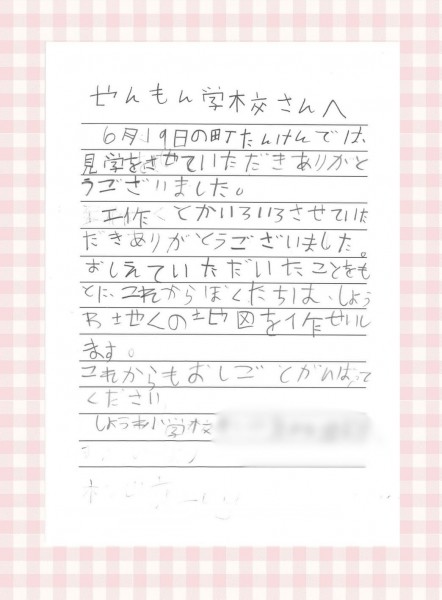 せんもん学校さんへ
6月19日の町たんけんでは、
見学をさせていただきありがと
うございました。
工作とかいろいろさせていた
だきありがとうございました。
おしえていただいたことをも
とに、これからぼくたちは、しょう
わ地くの地図を作せいし
ます。
これからもおしごとがんばって
ください
しょうわ小学校